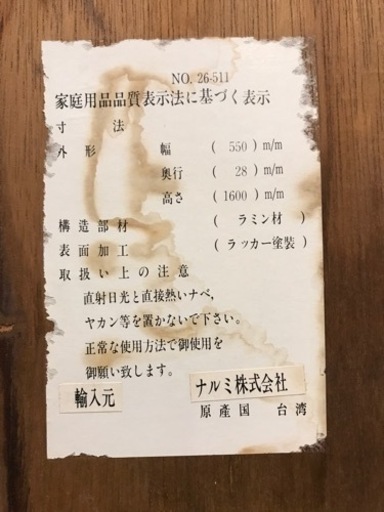 NO. 26-511
家庭用品品質表示法に基づく表示
寸法
外形 幅 ( 550 ) m/m
奥行 ( 28 ) m/m
高さ ( 1600 ) m/m
構造部材 ( ラミン材 )
表面加工 ( ラッカー塗装 )
取扱い上の注意
直射日光と直接熱いナベ,
ヤカン等を置かないで下さい。
正常な使用方法で御使用を
御願い致します。
輸入元 ナルミ株式会社
原産国 台湾